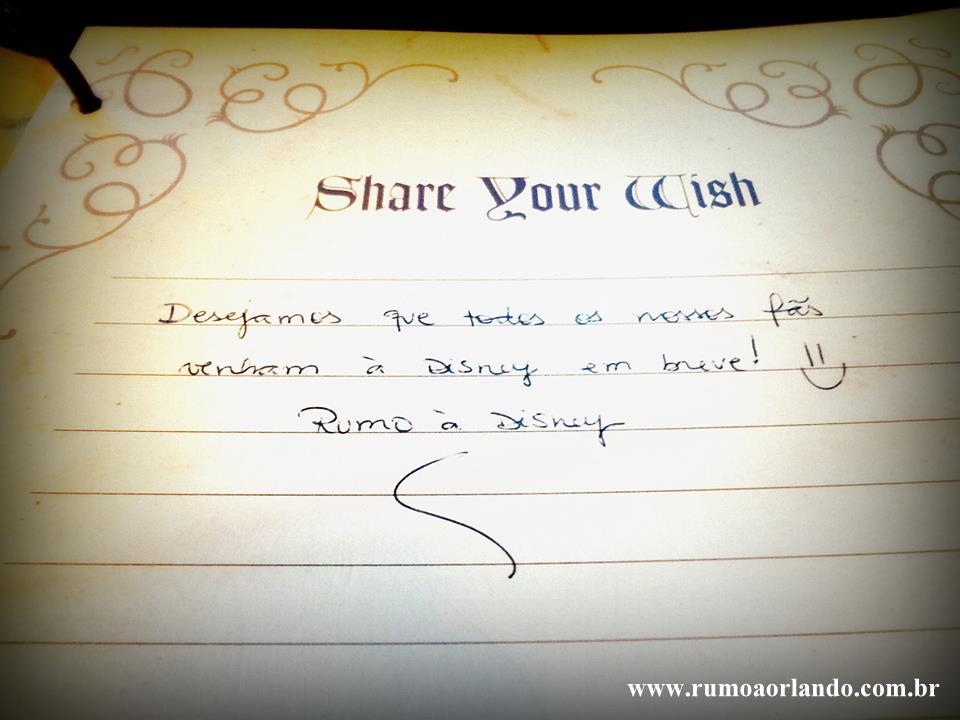 Share Your Wish
Desejamos que todos os nossos fãs
venham à Disney em breve!
Rumo à Disney
www.rumoaorlando.com.br